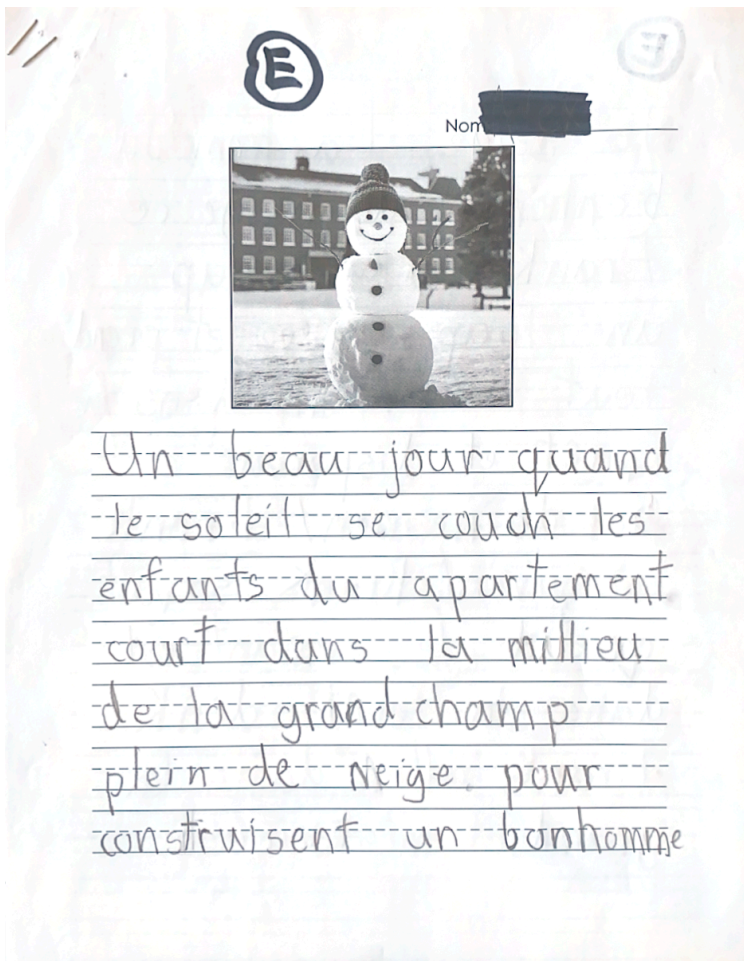 E
Nom
Un beau jour quand
le soleil se couch les
enfants du apartement
court dans la millieu
de la grand champ
plein de neige pour
construisent un bonhomme